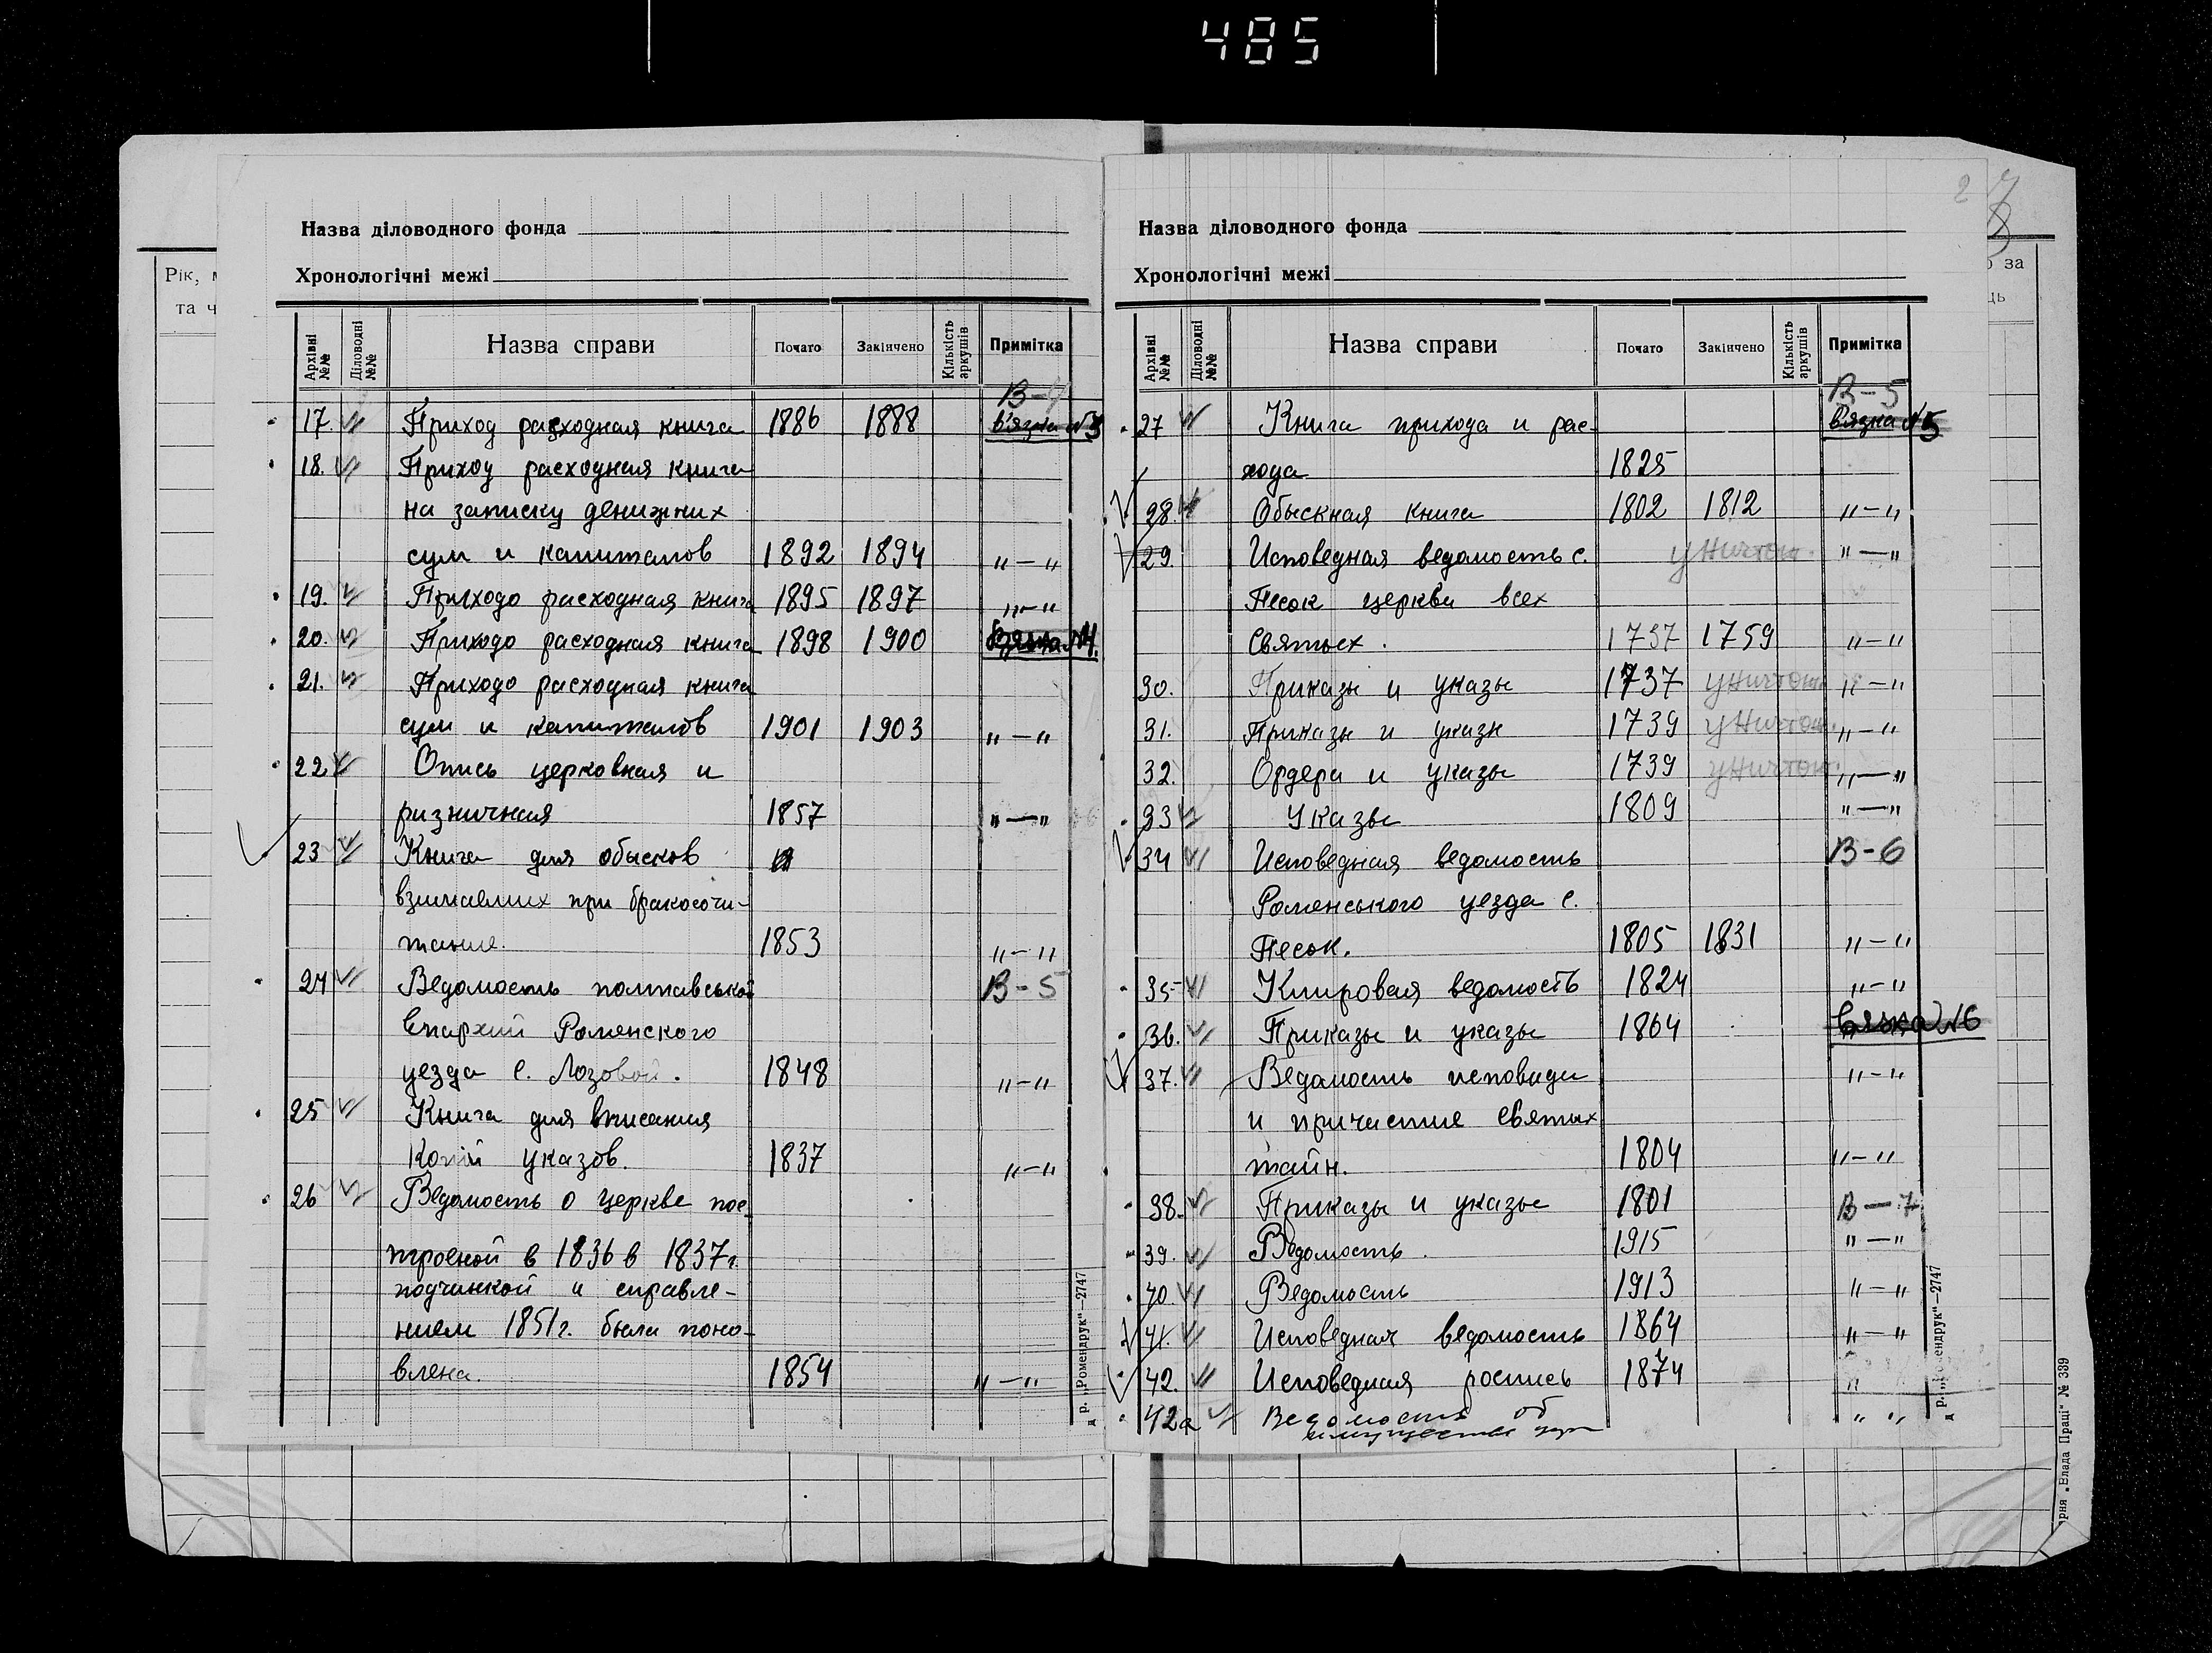 485
Рік, м
та ч
Назва діловодного фонда
Хронологічні межі
Архівні №№ Діловодні №№ Назва справи Почато Закінчено Кількість аркушів Примітка
В-4
17. Приход расходная книга 1886 1888 в'язка №3
18. Приход расходная книга
на записку денижних
сум и капиталов 1892 1894 "—"
19. Приходо расходная книга 1895 1897 "—"
20. Приходо расходная книга 1898 1900 №4.
21. Приходо расходная книга
сум и капиталов 1901 1903 "—"
22 Опись церковная и
ризничная 1857 "—"
23 Книга для обысков
взимаемих при бракосочи-
тание. 1853 "—"
24 Ведомость полтавськой В-5
Епархий Роменского
уезда с. Лозовой. 1848 "—"
25 Книга для вписания
копий указов. 1837 "—"
26 Ведомость о церкве пос-
троеной в 1836 в 1837г.
подчинкой и справле-
нием 1851г. была поно-
влена. 1854 "—"
д р. „Ромендрук"—2747
2
Назва діловодного фонда
Хронологічні межі
Архівні №№ Діловодні №№ Назва справи Почато Закінчено Кількість аркушів Примітка
В-5
27 Книга прихода и рас- в'язка №5
хода 1825
28. Обыскная книга 1802 1812 "—"
29. Исповедная ведомость с. уничтож. "—"
Песок церкви всех
Святых. 1737 1759 "—"
30. Приказы и указы 1737 уничтож. "—"
31. Приказы и указы 1739 уничтож. "—"
32. Ордера и указы 1739 уничтож. "—"
33 Указы 1809 "—"
34 Исповедная ведомость В-6
Роменського уезда с.
Песок. 1805 1831 "—"
35 Клировая ведомость 1824 "—"
36. Приказы и указы 1864 вязка №6
37. Ведомость исповеди "—"
и причастие святых
тайн. 1804 "—"
38. Приказы и указы 1801 В—7
39. Ведомость. 1915 "—"
40. Ведомость 1913 "—"
41. Исповедная ведомость 1864 "—"
42. Исповедная роспись 1874 "
42а Ведомость об " "
имуществе
о за
ць
рня „Влада Праці" № 339